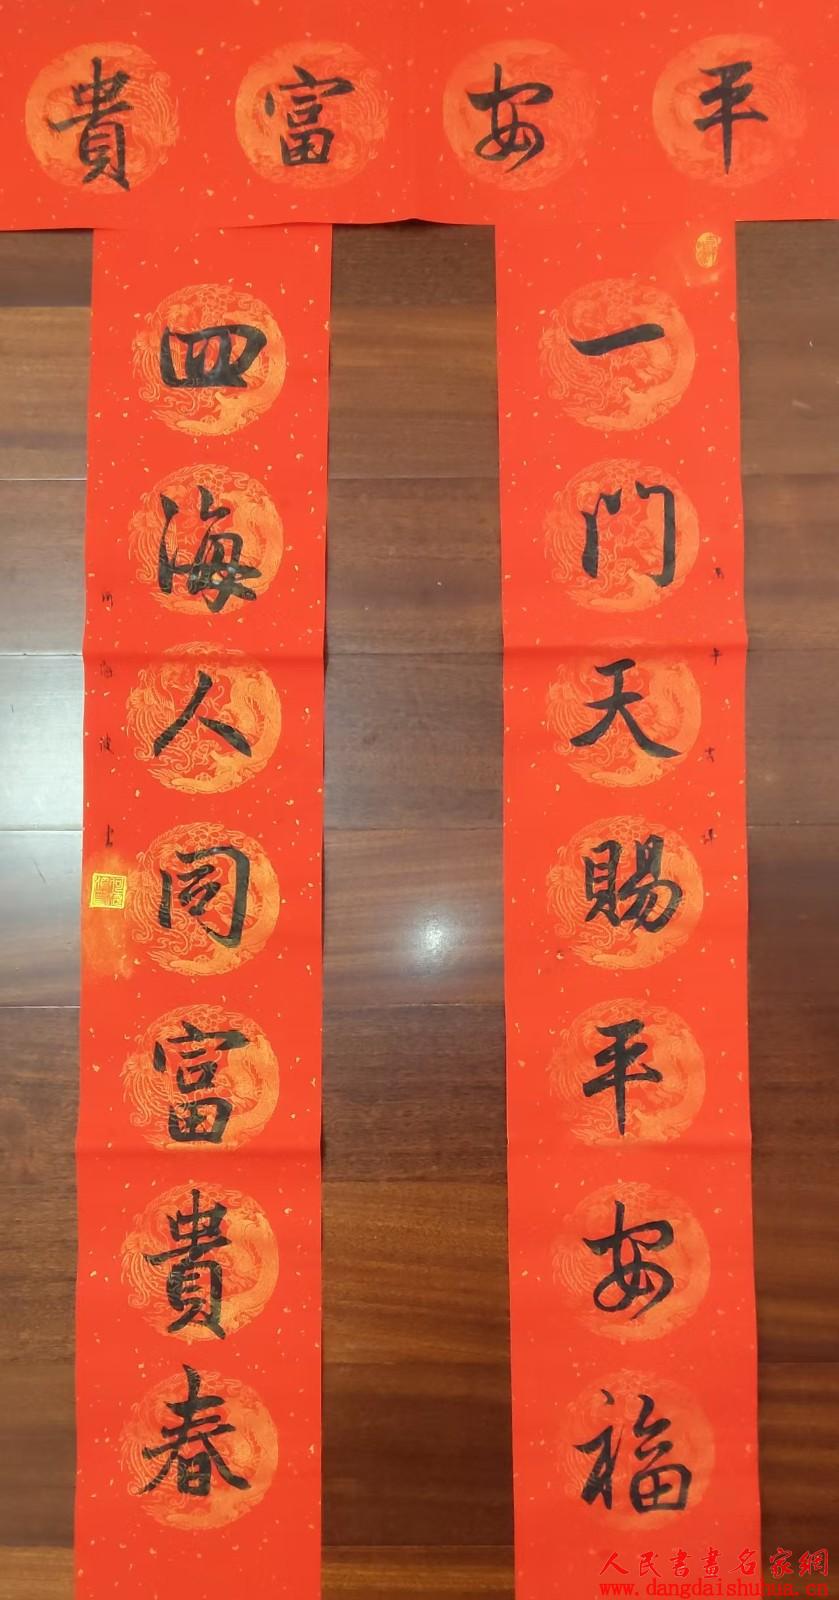 平安富貴
一門天賜平安福
四海人同富貴春
海波書
人民書畫名家網
www.dangdaishuhua.cn